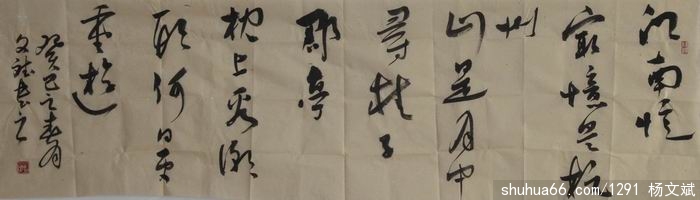 江南憶
最憶是杭
州
山是月中
尋桂子
郡亭
枕上看潮
頭何日更
重游
癸巳之春月
文斌書之
shuhua66.com/1291 杨文斌